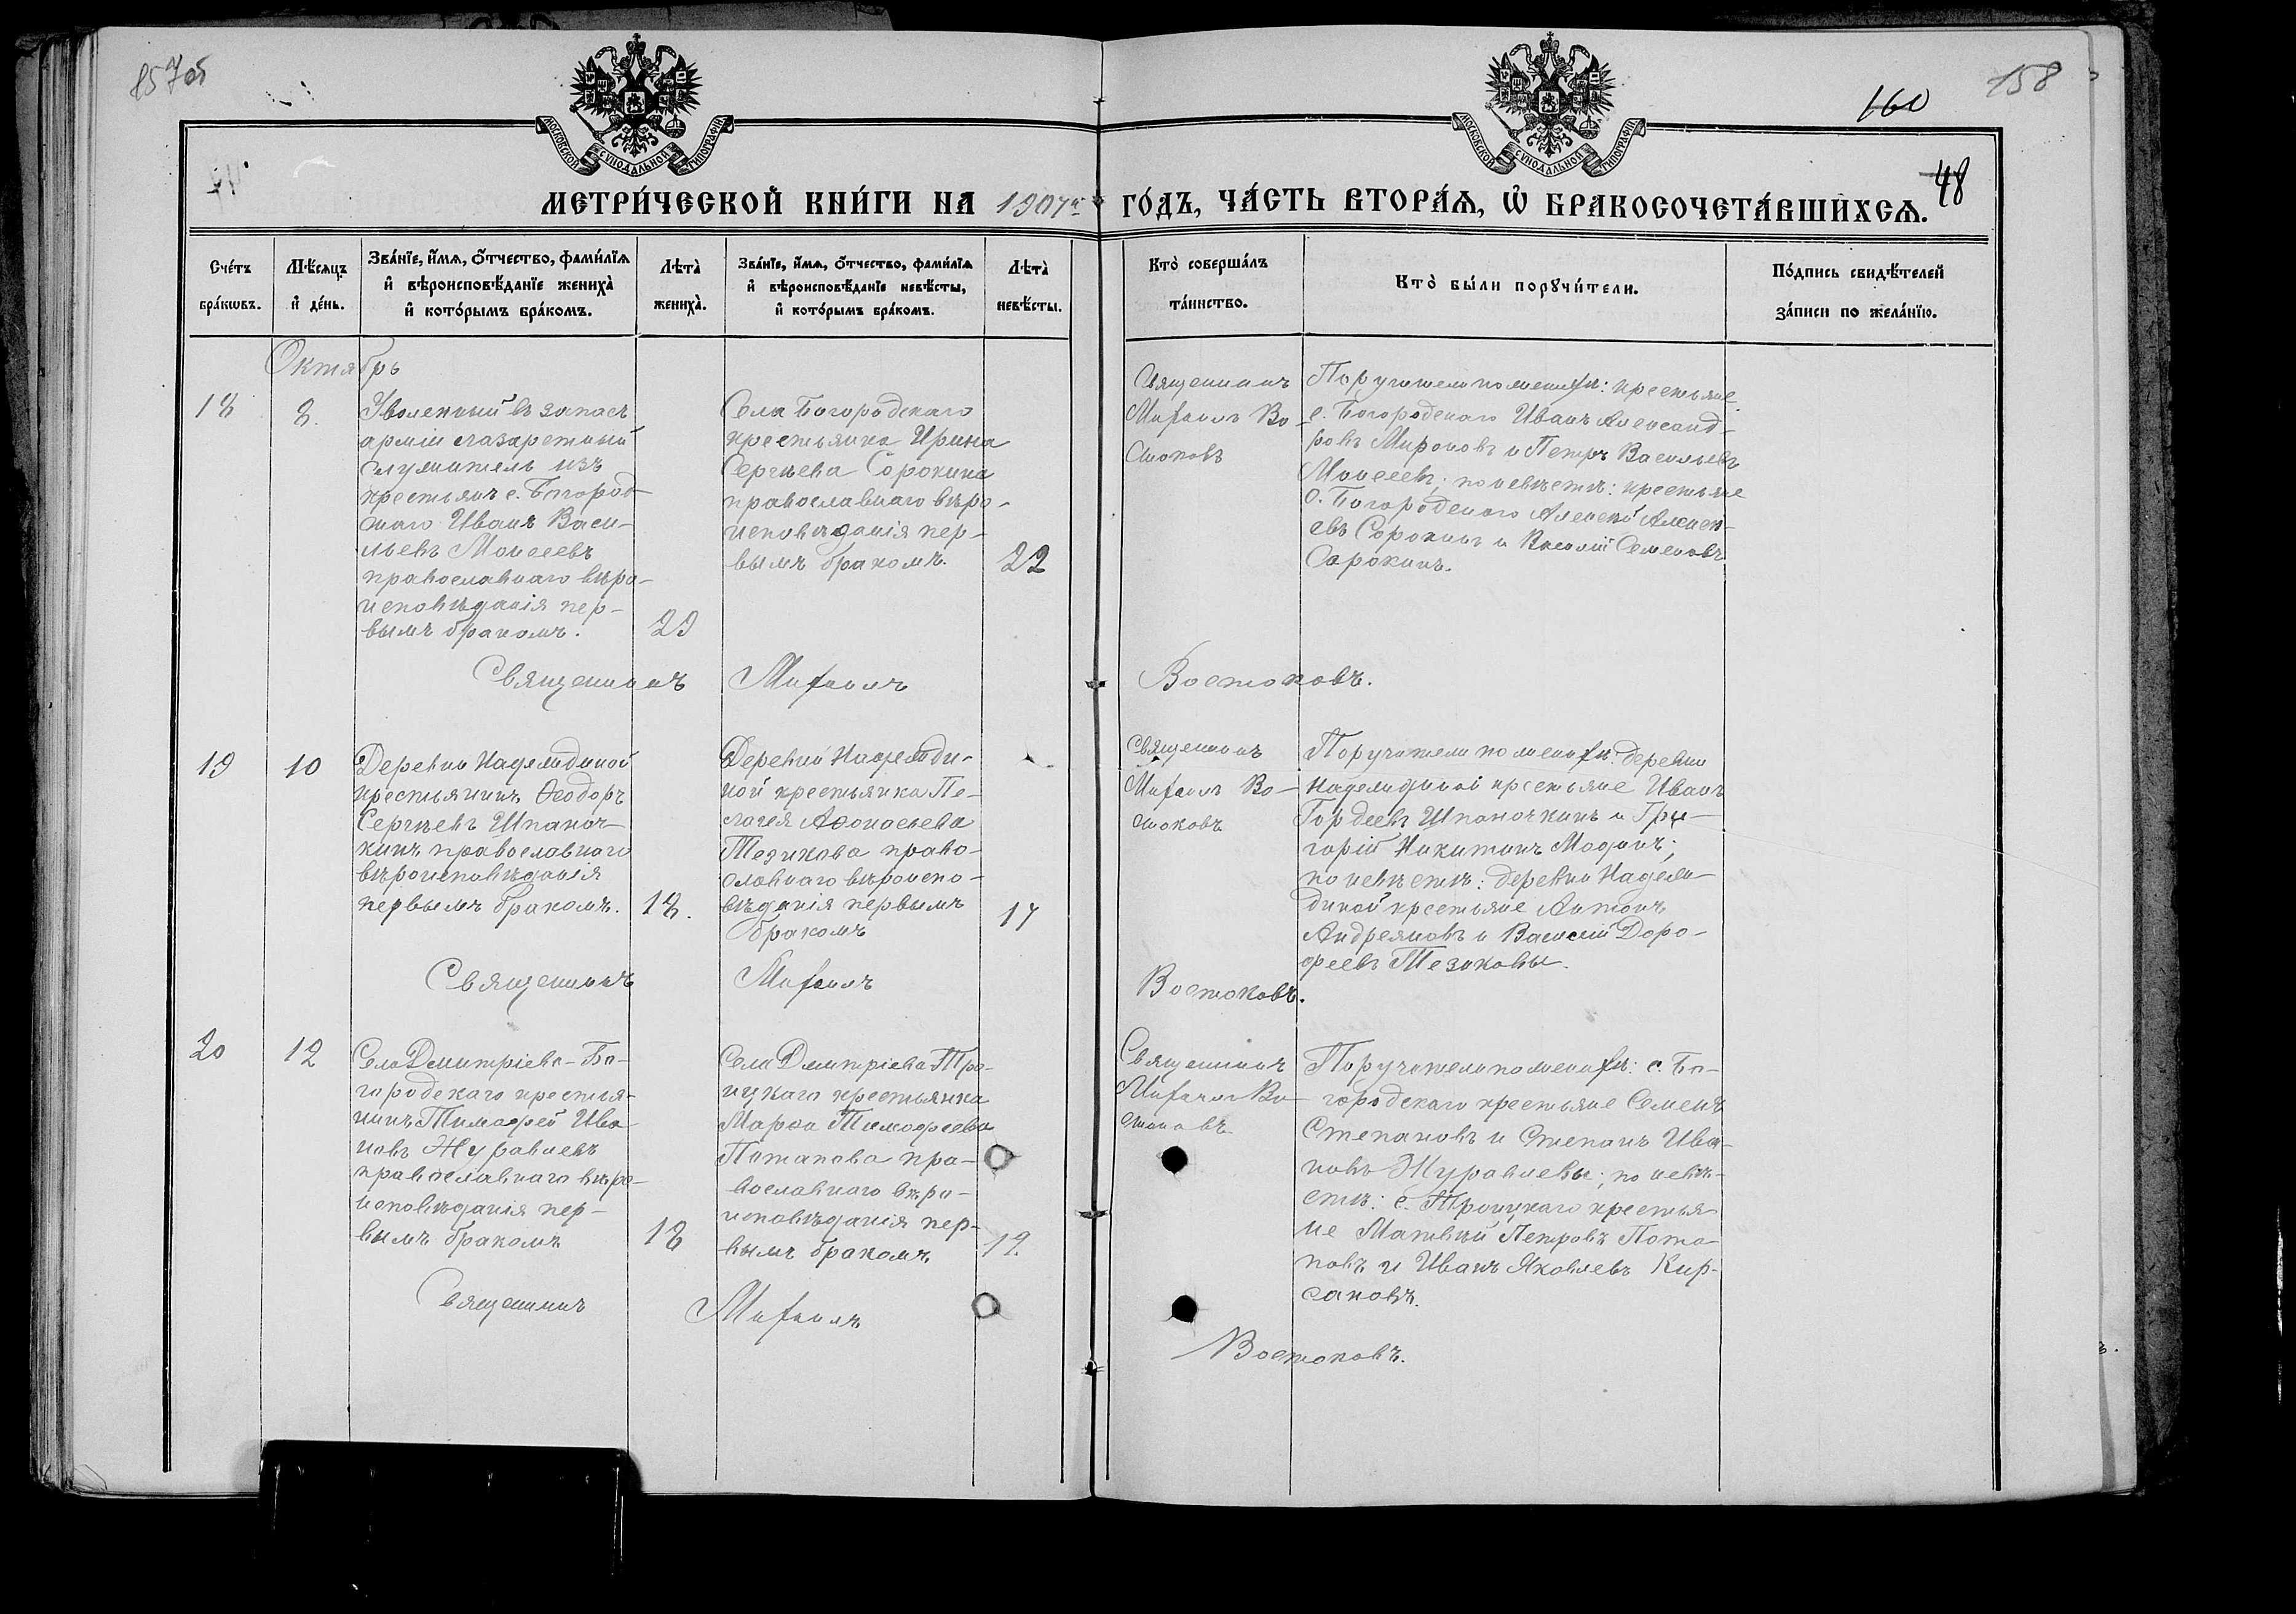 157об
160
158
48
МОСКОВСКОЙ СѴНОДАЛЬНОЙ ТИПОГРАФІИ
МОСКОВСКОЙ СѴНОДАЛЬНОЙ ТИПОГРАФІИ
МЕТРИ́ЧЕСКОЙ КНИ́ГИ НА 1907й ГО́ДЪ, ЧА́СТЬ ВТОРА́Ѧ, Ѽ БРАКОСОЧЕТА́ВШИХСѦ.
Сче́тъ бра́кѡвъ.
Мѣ́сяцъ и҆ де́нь.
Зва́нїе, и҆́мя, о҆́тчество, фами́лїя и҆ вѣроисповѣ́данїе жениха̀ и҆ кото́рымъ бра́комъ.
Лѣта̀ жениха̀.
Зва́нїе, и҆́мя, о҆́тчество, фами́лїя и҆ вѣроисповѣ́данїе невѣ́сты, и҆ кото́рымъ бра́комъ.
Лѣта̀ невѣ́сты.
Кто̀ соверша́лъ та́инство.
Кто̀ бы́ли порꙋчи́тели.
По́дпись свидѣ́телей за́писи по жела́нїю.
Октябрь
18
8.
Уволенный въ запасъ
арміи лазаретный
служитель изъ
крестьянъ с. Богород-
скаго Иванъ Васи-
льевъ Моисеевъ
православнаго вѣро-
исповѣданія пер-
вымъ бракомъ.
23
Села Богородскаго
крестьянка Ирина
Сергѣева Сорокина
православнаго вѣро-
исповѣданія пер-
вымъ бракомъ.
22
Священникъ
Михаилъ Во-
стоковъ
Поручители по женихѣ: крестьяне
с. Богородскаго Иванъ Александ-
ровъ Мироновъ и Петръ Васильевъ
Моисеевъ; по невѣстѣ: крестьяне
с. Богородскаго Алексѣй Алексе-
евъ Сорокинъ и Василій Семеновъ
Сорокинъ.
Священникъ Михаилъ Востоковъ.
19
10
Деревни Надеждиной
крестьянинъ Ѳеодоръ
Сергѣевъ Шпаноч-
кинъ православнаго
вѣроисповѣданія
первымъ бракомъ.
18.
Деревни Надежди-
ной крестьянка Пе-
лагея Аѳонасьева
Тезикова право-
славнаго вѣроиспо-
вѣданія первымъ
бракомъ
17
Священникъ
Михаилъ Во-
стоковъ
Поручители по женихѣ: деревни
Надеждиной крестьяне Иванъ
Гордеевъ Шпаночкинъ и Гри-
горій Никитинъ Модинъ;
по невѣстѣ: деревни Надеж-
диной крестьяне Антонъ
Андреяновъ и Василій Доро-
феевъ Тезиковы.
Священникъ Михаилъ Востоковъ.
20
12
Села Дмитріева-Бо-
городскаго крестья-
нинъ Тимофей Ива-
новъ Журавлевъ
православнаго вѣро-
исповѣданія пер-
вымъ бракомъ
18
Села Дмитріева Тро-
ицкаго крестьянка
Марѳа Тимофеева
Потапова пра-
вославнаго вѣро-
исповѣданія пер-
вымъ бракомъ.
19.
Священникъ
Михаилъ Во-
стоковъ
Поручители по женихѣ: с. Бо-
городскаго крестьяне Семенъ
Степановъ и Степанъ Ива-
новъ Журавлевы; по невѣ-
стѣ: с. Троицкаго крестья-
не Матвѣй Петровъ Пота-
повъ и Иванъ Яковлевъ Кир-
сановъ.
Священникъ Михаилъ Востоковъ.